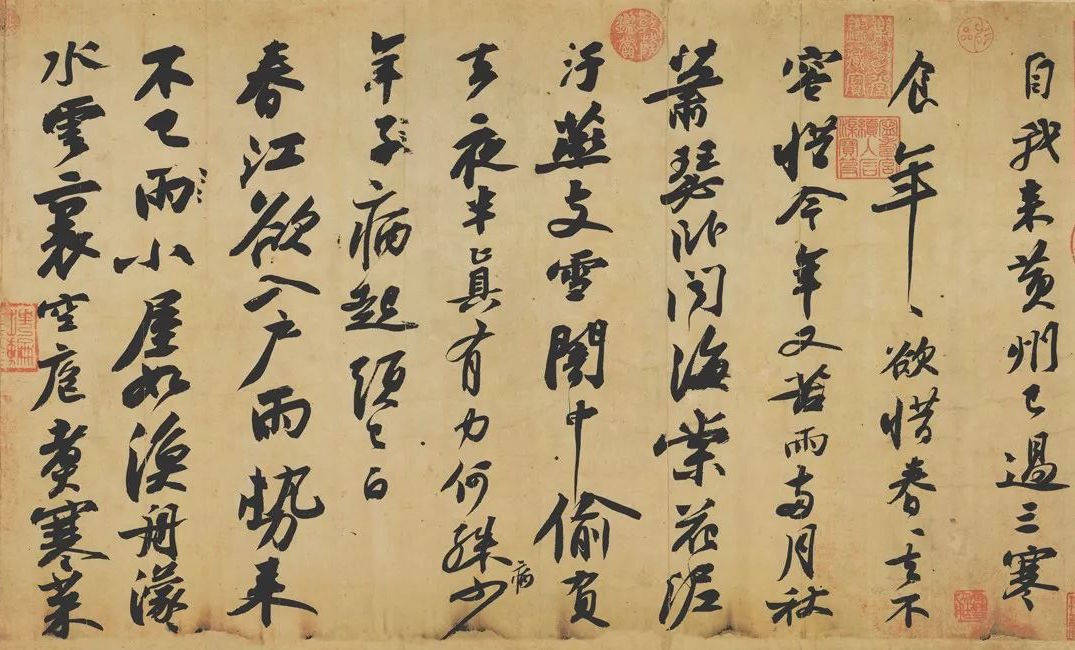 自我來黃州已過三寒
食年〻欲惜春〻去不
容惜今年又苦雨兩月秋
蕭瑟臥聞海棠花泥
汙燕支雪闇中偷負
去夜半真有力何殊病少
年子病起頭已白
春江欲入戶雨勢來
不已雨小屋如漁舟濛〻
水雲裏空庖煮寒菜